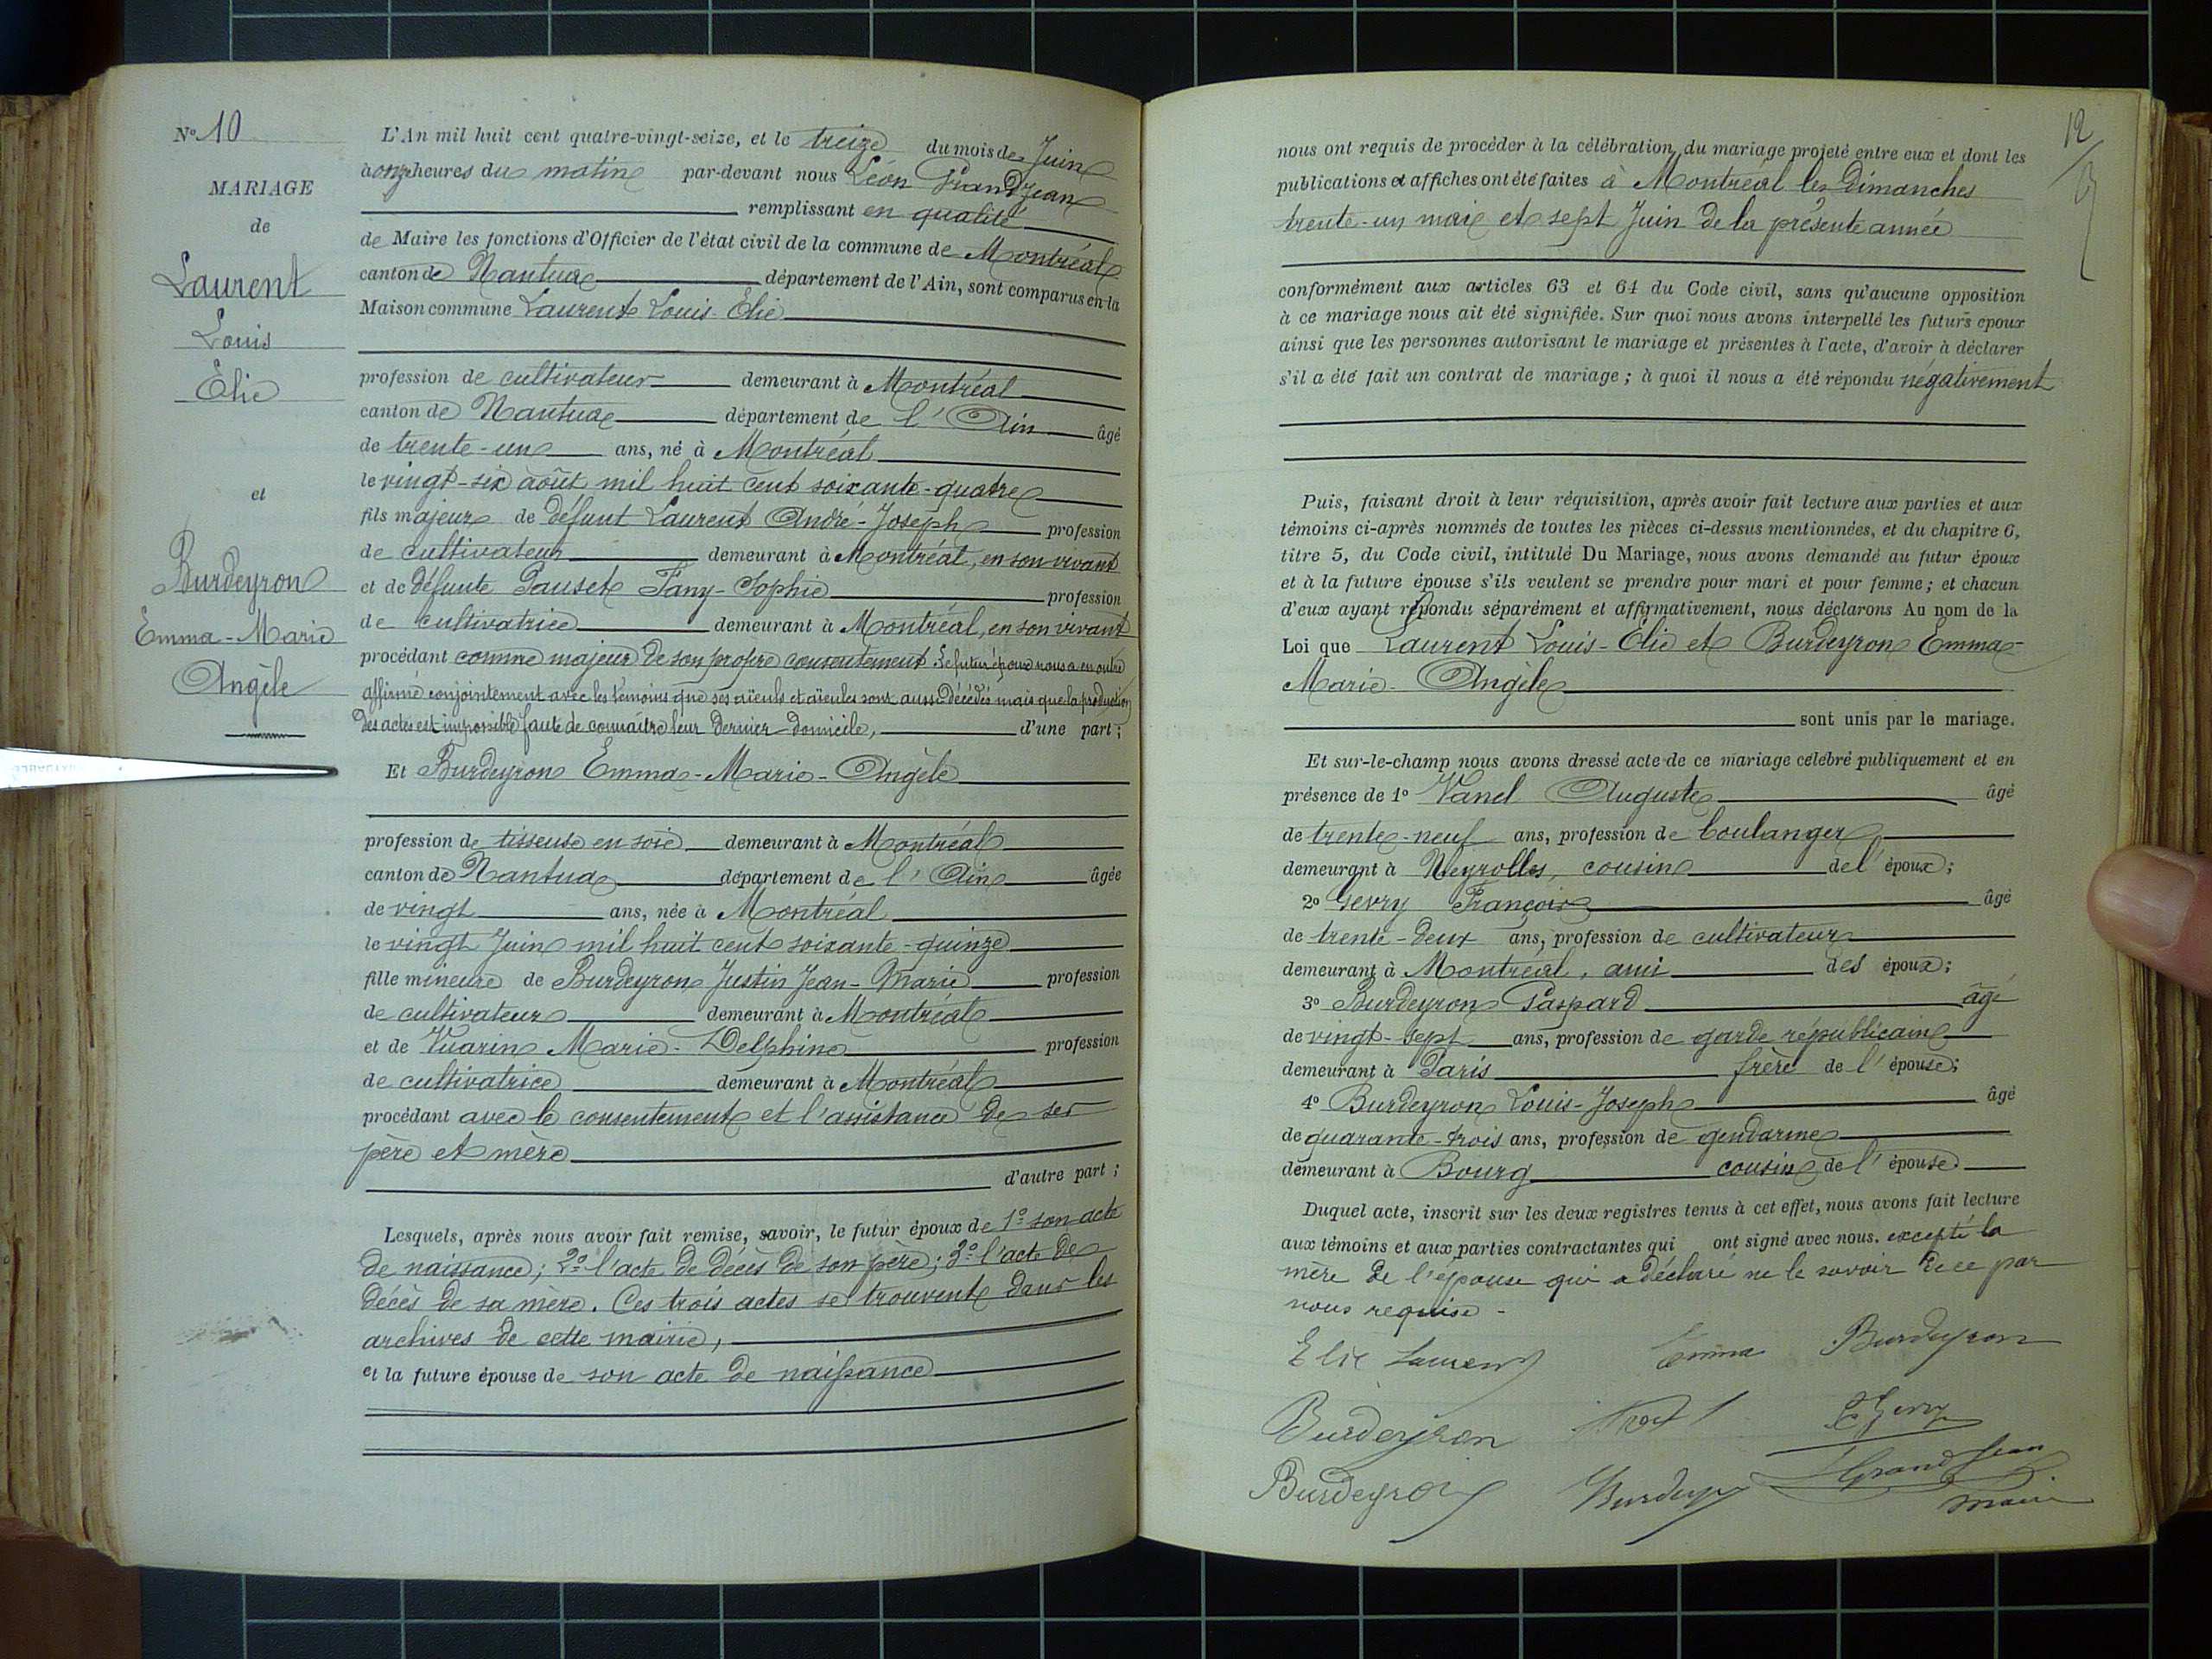 No 10
MARIAGE
de
Laurent
Louis
Elie
et
Burdeyron
Emma-Marie
Angèle
L'An mil huit cent quatre-vingt-seize, et le treize du mois de Juin
à onze heures du matin par-devant nous Léon Grandjean
remplissant en qualité
de Maire les fonctions d'Officier de l'état civil de la commune de Montréal
canton de Nantua département de l'Ain, sont comparus en la
Maison commune Laurent Louis-Elie
profession de cultivateur demeurant à Montréal
canton de Nantua département de l'Ain âgé
de trente-un ans, né à Montréal
le vingt-six août mil huit cent soixante-quatre
fils majeur de défunt Laurent André-Joseph profession
de cultivateur demeurant à Montréal, en son vivant
et de défunte Pauset Fany-Sophie profession
de cultivatrice demeurant à Montréal, en son vivant
procédant comme majeur de son propre consentement. Le futur époux nous a en outre
affirmé conjointement avec les témoins que ses aïeuls et aïeules sont aussi décédés mais que la production
des actes est impossible faute de connaître leur dernier domicile, d'une part;
Et Burdeyron Emma-Marie-Angèle
profession de tisseuse en soie demeurant à Montréal
canton de Nantua département de l'Ain âgée
de vingt ans, née à Montréal
le vingt Juin mil huit cent soixante-quinze
fille mineure de Burdeyron Justin Jean-Marie profession
de cultivateur demeurant à Montréal
et de Vuarin Marie-Delphine profession
de cultivatrice demeurant à Montréal
procédant avec le consentement et l'assistance de ses
père et mère
d'autre part;
Lesquels, après nous avoir fait remise, savoir, le futur époux de 1o son acte
de naissance; 2o l'acte de décès de son père; 3o l'acte de
décès de sa mère. Ces trois actes se trouvent dans les
archives de cette mairie,
et la future épouse de son acte de naissance
12
nous ont requis de procéder à la célébration du mariage projeté entre eux et dont les
publications et affiches ont été faites à Montréal les Dimanches
trente-un mai et sept Juin de la présente année
conformément aux articles 63 et 64 du Code civil, sans qu'aucune opposition
à ce mariage nous ait été signifiée. Sur quoi nous avons interpellé les futurs époux
ainsi que les personnes autorisant le mariage et présentes à l'acte, d'avoir à déclarer
s'il a été fait un contrat de mariage; à quoi il nous a été répondu négativement
Puis, faisant droit à leur réquisition, après avoir fait lecture aux parties et aux
témoins ci-après nommés de toutes les pièces ci-dessus mentionnées, et du chapitre 6,
titre 5, du Code civil, intitulé Du Mariage, nous avons demandé au futur époux
et à la future épouse s'ils veulent se prendre pour mari et pour femme; et chacun
d'eux ayant répondu séparément et affirmativement, nous déclarons Au nom de la
Loi que Laurent Louis-Elie et Burdeyron Emma-
Marie-Angèle
sont unis par le mariage.
Et sur-le-champ nous avons dressé acte de ce mariage célébré publiquement et en
présence de 1o Vanel Auguste âgé
de trente-neuf ans, profession de boulanger
demeurant à Neyrolles, cousin de l'époux;
2o Gevry François âgé
de trente-deux ans, profession de cultivateur
demeurant à Montréal, ami des époux;
3o Burdeyron Gaspard âgé
de vingt-sept ans, profession de garde républicain
demeurant à Paris frère de l'épouse;
4o Burdeyron Louis-Joseph âgé
de quarante-trois ans, profession de gendarme
demeurant à Bourg cousin de l'épouse
Duquel acte, inscrit sur les deux registres tenus à cet effet, nous avons fait lecture
aux témoins et aux parties contractantes qui ont signé avec nous. excepté la
mère de l'épouse qui a déclaré ne le savoir de ce par
nous requise -
Elie Laurent Emma Burdeyron
Burdeyron Gevry
Burdeyron Burdeyron Grandjean
maire